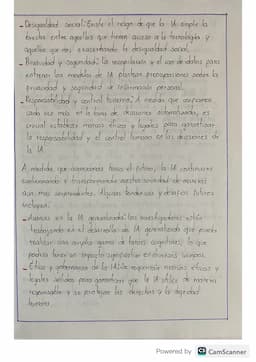 - Desigualdad social: Existe el riesgo de que la IA amplíe la
brecha entre aquellos que tienen acceso a la tecnología y
aquellos que no, exacerbando la desigualdad social.
- Privacidad y seguridad: la recopilación y el uso de datos para
entrenar los modelos de IA plantean preocupaciones sobre la
privacidad y seguridad de información personal.
- Responsabilidad y control humano: A medida que confiamos
cada vez más en la toma de decisiones automatizadas, es
crucial establecer marcos éticos y legales para garantizar
la responsabilidad y el control humano en las decisiones de
la IA.
A medida que avanzamos hacia el futuro, la IA continuará
evolucionando y transformando nuestra sociedad de maneras
aún más sorprendentes. Algunas tendencias y desafíos futuros
incluyen:
- Avances en la IA generalizada: los investigadores están
trabajando en el desarrollo de IA generalizada que pueda
realizar una amplia gama de tareas cognitivas, lo que
podría tener un impacto significativo en diversos campos.
- Ética y gobernanza de la IA: Se requerirán marcos éticos y
legales sólidos para garantizar que la IA utilice de manera
responsable y se protejan los derechos y la dignidad
humana.
Powered by CS CamScanner